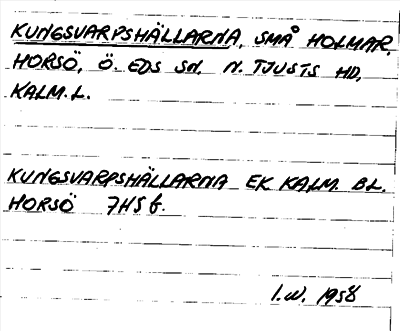 KUNGSVARPSHÄLLARNA, SMÅ HOLMAR,
HORSÖ, Ö. EDS SN, N. TJUSTS HD,
KALM. L.
KUNGSVARPSHÄLLARNA EK KALM. BL.
HORSÖ 7H5f.
I.W. 1958